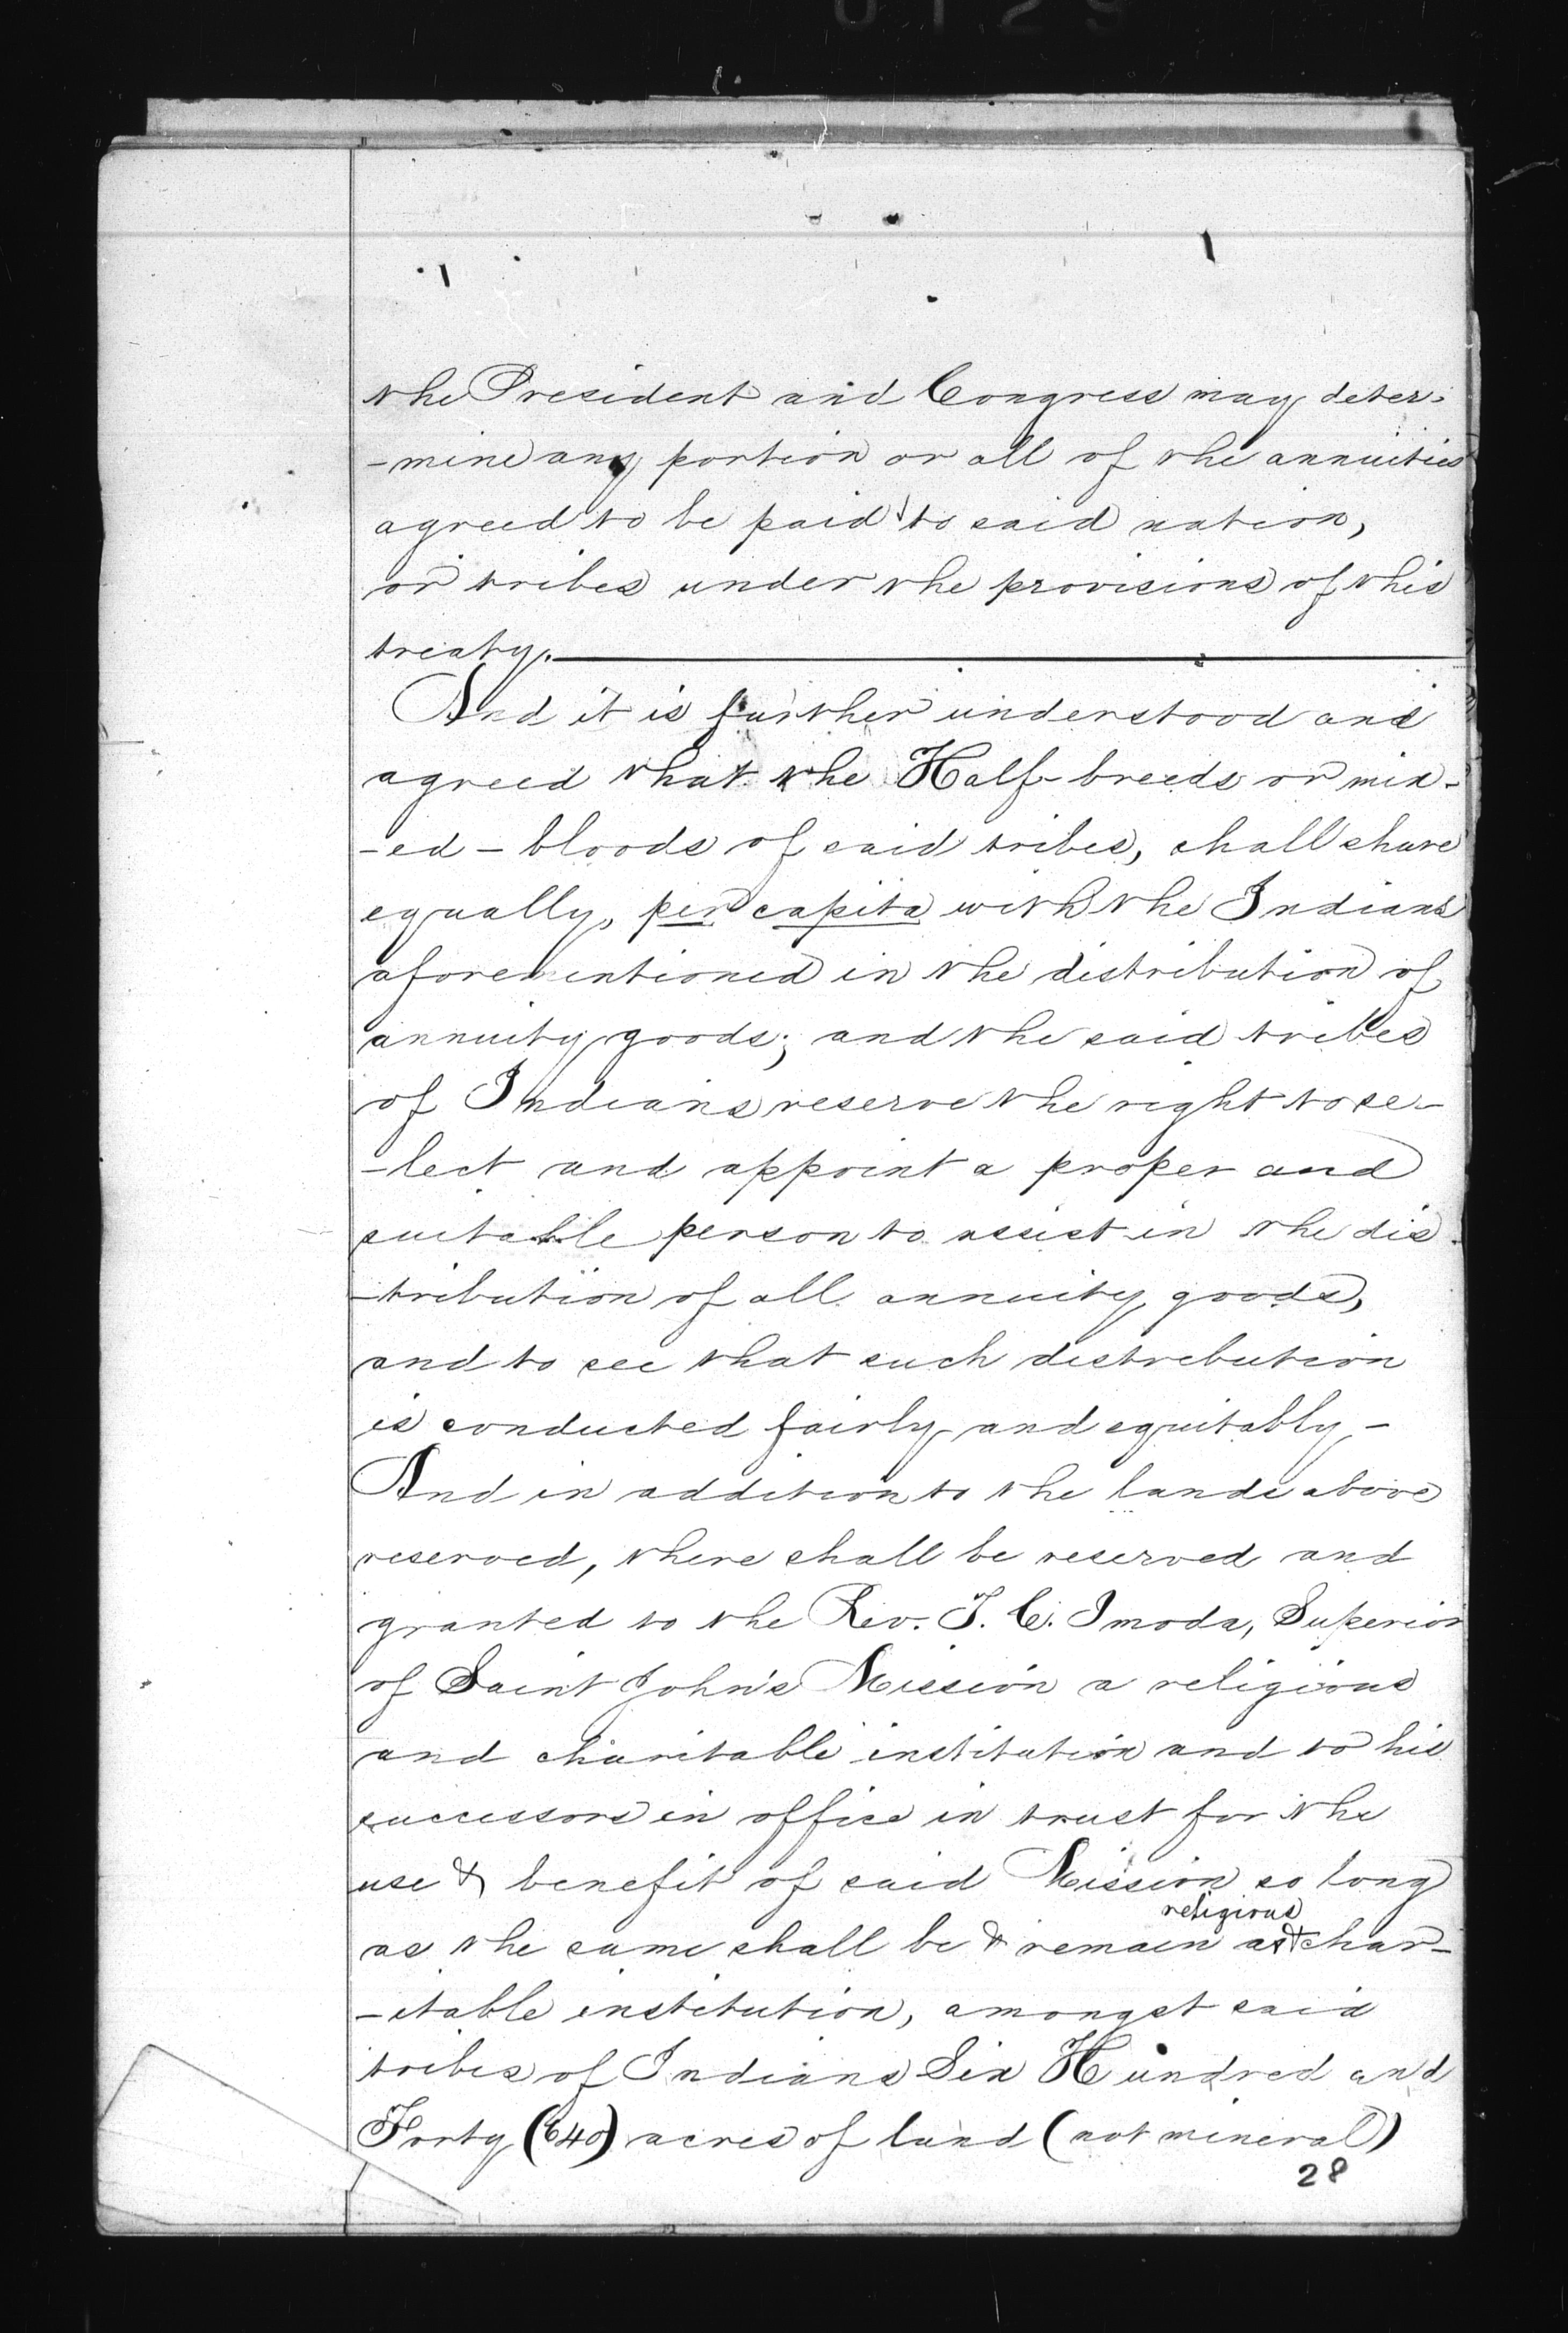 the President and Congress may deter-
-mine any portion or all of the annuities
agreed to be paid to said nation,
or tribes under the provisions of this
treaty.
And it is further understood and
agreed that the Half-breeds or mix-
-ed-bloods of said tribes, shall share
equally, per capita with the Indians
aforementioned in the distribution of
annuity goods; and the said tribes
of Indians reserve the right to se-
-lect and appoint a proper and
suitable person to assist in the dis-
-tribution of all annuity goods,
and to see that such distribution
is conducted fairly and equitably-
And in addition to the lands above
reserved, there shall be reserved and
granted to the Rev. J. C. Imoda, Superior
of Saint John's Mission a religious
and charitable institution and to his
successors in office in trust for the
use & benefit of said Mission so long
religious
as the same shall be & remain as & char-
-itable institution, amongst said
tribes of Indians Six Hundred and
Forty (640) acres of land (not mineral)
28